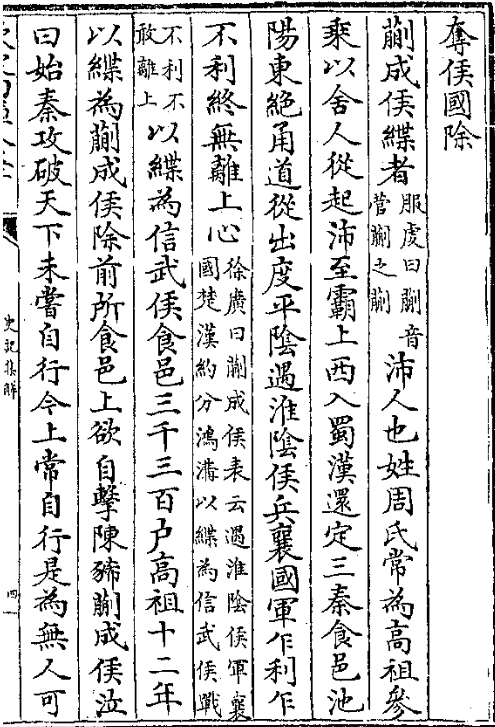 奪侯國除
蒯成侯緤者服虔曰蒯音菅蒯之蒯沛人也姓周氏常為高祖參
乘以舍人從起沛至霸上西入蜀漢還定三秦食邑池
陽東絕甬道從出度平陰遇淮陰侯兵襄國軍乍利乍
不利終無離上心徐廣曰蒯成侯表云遇淮陰侯軍襄國楚漢約分鴻溝以緤為信武侯戰
不利不敢離上以緤為信武侯食邑三千三百戶高祖十二年
以緤為蒯成侯除前所食邑上欲自擊陳豨蒯成侯泣
曰始秦攻破天下未嘗自行今上常自行是為無人可
史記集解